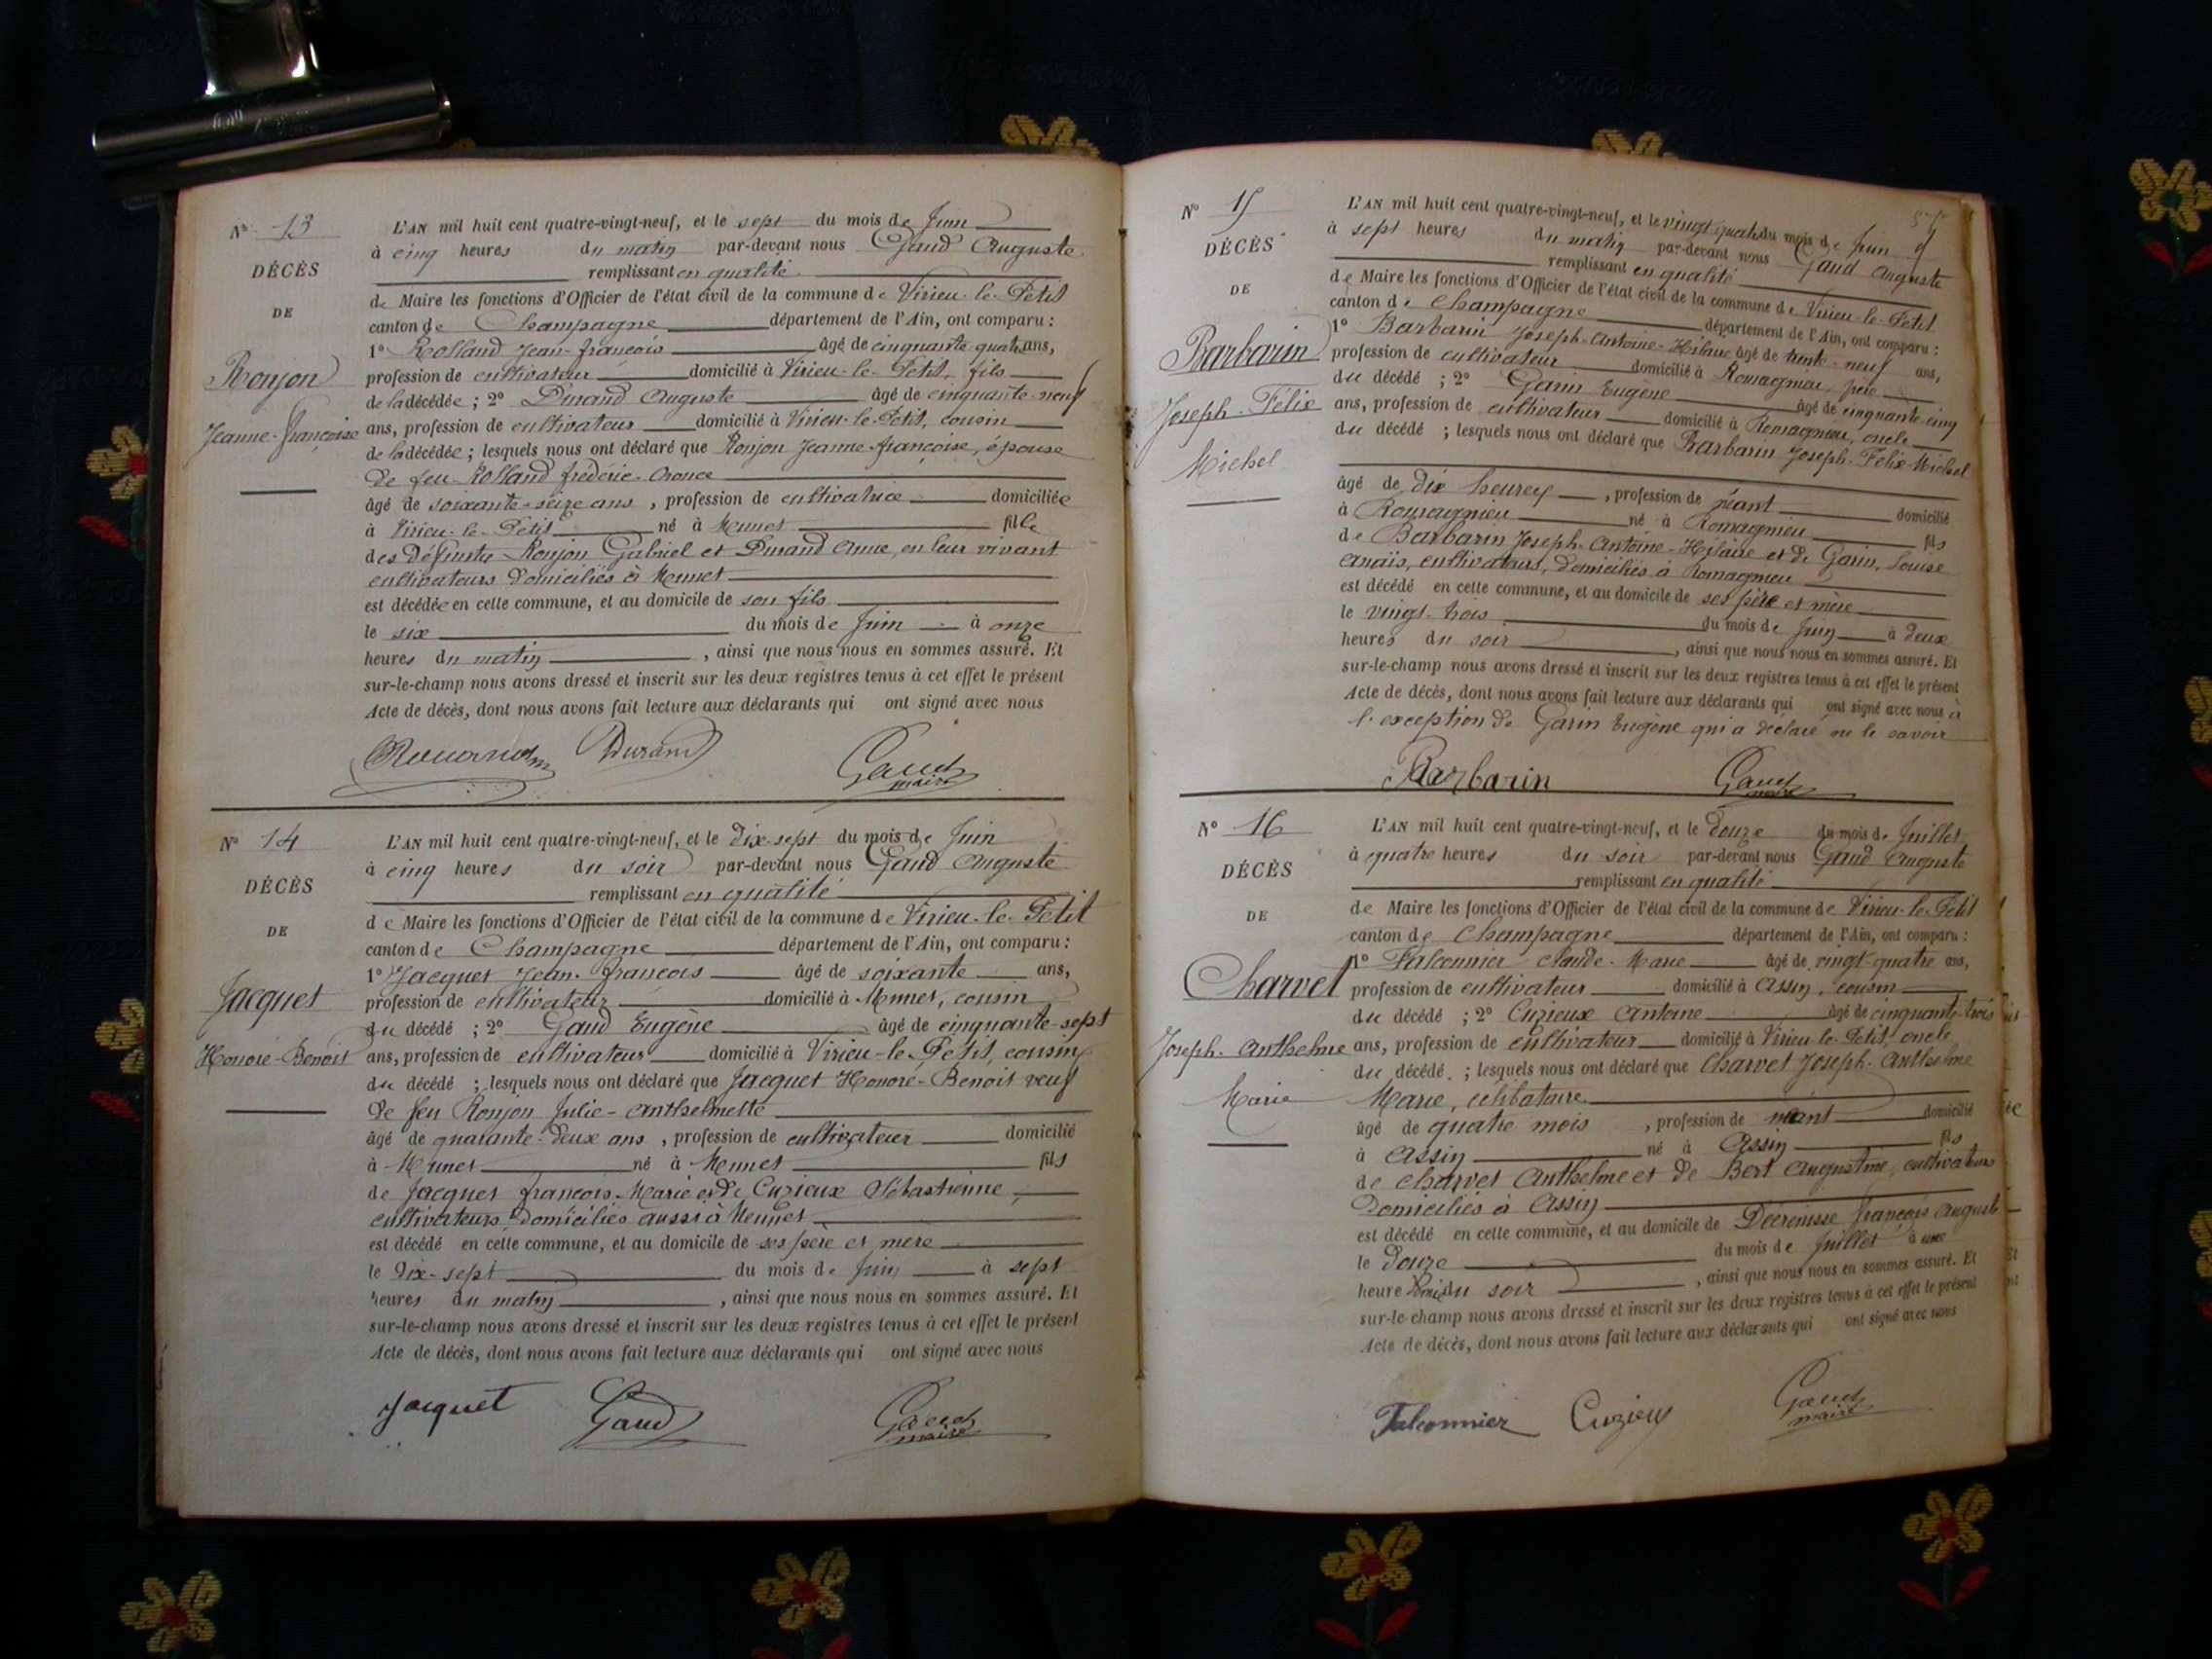 N° 13
DÉCÈS
DE
Roujon
Jeanne-françoise
L'AN mil huit cent quatre-vingt-neuf, et le sept du mois de Juin
à cinq heures du matin par-devant nous Gaud Auguste
remplissant en qualité
de Maire les fonctions d'Officier de l'état civil de la commune de Virieu-le-Petit
canton de Champagne département de l'Ain, ont comparu :
1° Rolland Jean-françois âgé de cinquante quatre ans,
profession de cultivateur domicilié à Virieu-le-Petit, fils
de la décédée ; 2° Durand Auguste âgé de cinquante-neuf
ans, profession de cultivateur domicilié à Virieu-le-Petit, cousin
de la décédée ; lesquels nous ont déclaré que Roujon Jeanne-françoise, épouse
de feu Rolland frédéric
âgé de soixante-seize ans, profession de cultivatrice domiciliée
à Virieu-le-Petit né à Munet fille
des défunts Roujon Gabriel et Durand Anne, en leur vivant
cultivateurs domiciliés à Munet
est décédée en cette commune, et au domicile de son fils
le six du mois de Juin à onze
heures du matin, ainsi que nous nous en sommes assuré. Et
sur-le-champ nous avons dressé et inscrit sur les deux registres tenus à cet effet le présent
Acte de décès, dont nous avons fait lecture aux déclarants qui ont signé avec nous
Durand Gaud
maire
N° 14
DÉCÈS
DE
Jacquet
Honoré-Benoit
L'AN mil huit cent quatre-vingt-neuf, et le dix-sept du mois de Juin
à cinq heures du soir par-devant nous Gaud Auguste
remplissant en qualité
de Maire les fonctions d'Officier de l'état civil de la commune de Virieu-le-Petit
canton de Champagne département de l'Ain, ont comparu :
1° Jacquet Jean-françois âgé de soixante ans,
profession de cultivateur domicilié à Munet, cousin
du décédé ; 2° Gaud Eugène âgé de cinquante-sept
ans, profession de cultivateur domicilié à Virieu-le-Petit, cousin
du décédé ; lesquels nous ont déclaré que Jacquet Honoré-Benoit veuf
de feu Roujon Julie-Anthelmette
âgé de quarante-deux ans, profession de cultivateur domicilié
à Munet né à Munet fils
de Jacquet françois-Marie et de Cuzieux Sébastienne,
cultivateurs domiciliés aussi à Munet
est décédé en cette commune, et au domicile de ses père et mère
le dix-sept du mois de Juin à sept
heures du matin, ainsi que nous nous en sommes assuré. Et
sur-le-champ nous avons dressé et inscrit sur les deux registres tenus à cet effet le présent
Acte de décès, dont nous avons fait lecture aux déclarants qui ont signé avec nous
Jacquet Gaud Gaud
maire
N° 15
DÉCÈS
DE
Barbarin
Joseph-Félix
Michel
L'AN mil huit cent quatre-vingt-neuf, et le vingt quatre du mois de Juin
à sept heures du matin par-devant nous Gaud Auguste
remplissant en qualité
de Maire les fonctions d'Officier de l'état civil de la commune de Virieu-le-Petit
canton de Champagne département de l'Ain, ont comparu :
1° Barbarin Joseph-Antoine-Hilaire âgé de trente-neuf ans,
profession de cultivateur domicilié à Romagnieu, père
du décédé ; 2° Garin Eugène âgé de cinquante-cinq
ans, profession de cultivateur domicilié à Romagnieu, oncle
du décédé ; lesquels nous ont déclaré que Barbarin Joseph-Félix-Michel
âgé de dix heures, profession de néant domicilié
à Romagnieu né à Romagnieu fils
de Barbarin Joseph-Antoine-Hilaire et de Garin, Louise
Anaïs, cultivateurs, domiciliés à Romagnieu
est décédé en cette commune, et au domicile de ses père et mère
le vingt-trois du mois de Juin à deux
heures du soir, ainsi que nous nous en sommes assuré. Et
sur-le-champ nous avons dressé et inscrit sur les deux registres tenus à cet effet le présent
Acte de décès, dont nous avons fait lecture aux déclarants qui ont signé avec nous à
l'exception de Garin Eugène qui a déclaré ne le savoir
Barbarin Gaud
maire
N° 16
DÉCÈS
DE
Charvet
Joseph-Anthelme
Marie
L'AN mil huit cent quatre-vingt-neuf, et le douze du mois de Juillet
à quatre heures du soir par-devant nous Gaud Auguste
remplissant en qualité
de Maire les fonctions d'Officier de l'état civil de la commune de Virieu-le-Petit
canton de Champagne département de l'Ain, ont comparu :
1° Falconnier Claude-Marie âgé de vingt-quatre ans,
profession de cultivateur domicilié à Assin, cousin
du décédé ; 2° Cuzieux Antoine âgé de cinquante-trois
ans, profession de cultivateur domicilié à Virieu-le-Petit, oncle
du décédé ; lesquels nous ont déclaré que Charvet Joseph-Anthelme
Marie, célibataire
âgé de quatre mois, profession de néant domicilié
à Assin né à Assin fils
de Charvet Anthelme et de Bert Augustine, cultivateurs
domiciliés à Assin
est décédé en cette commune, et au domicile de françois Auguste
le douze du mois de Juillet à une
heure du soir, ainsi que nous nous en sommes assuré. Et
sur-le-champ nous avons dressé et inscrit sur les deux registres tenus à cet effet le présent
Acte de décès, dont nous avons fait lecture aux déclarants qui ont signé avec nous
Falconnier Cuzieux Gaud
maire